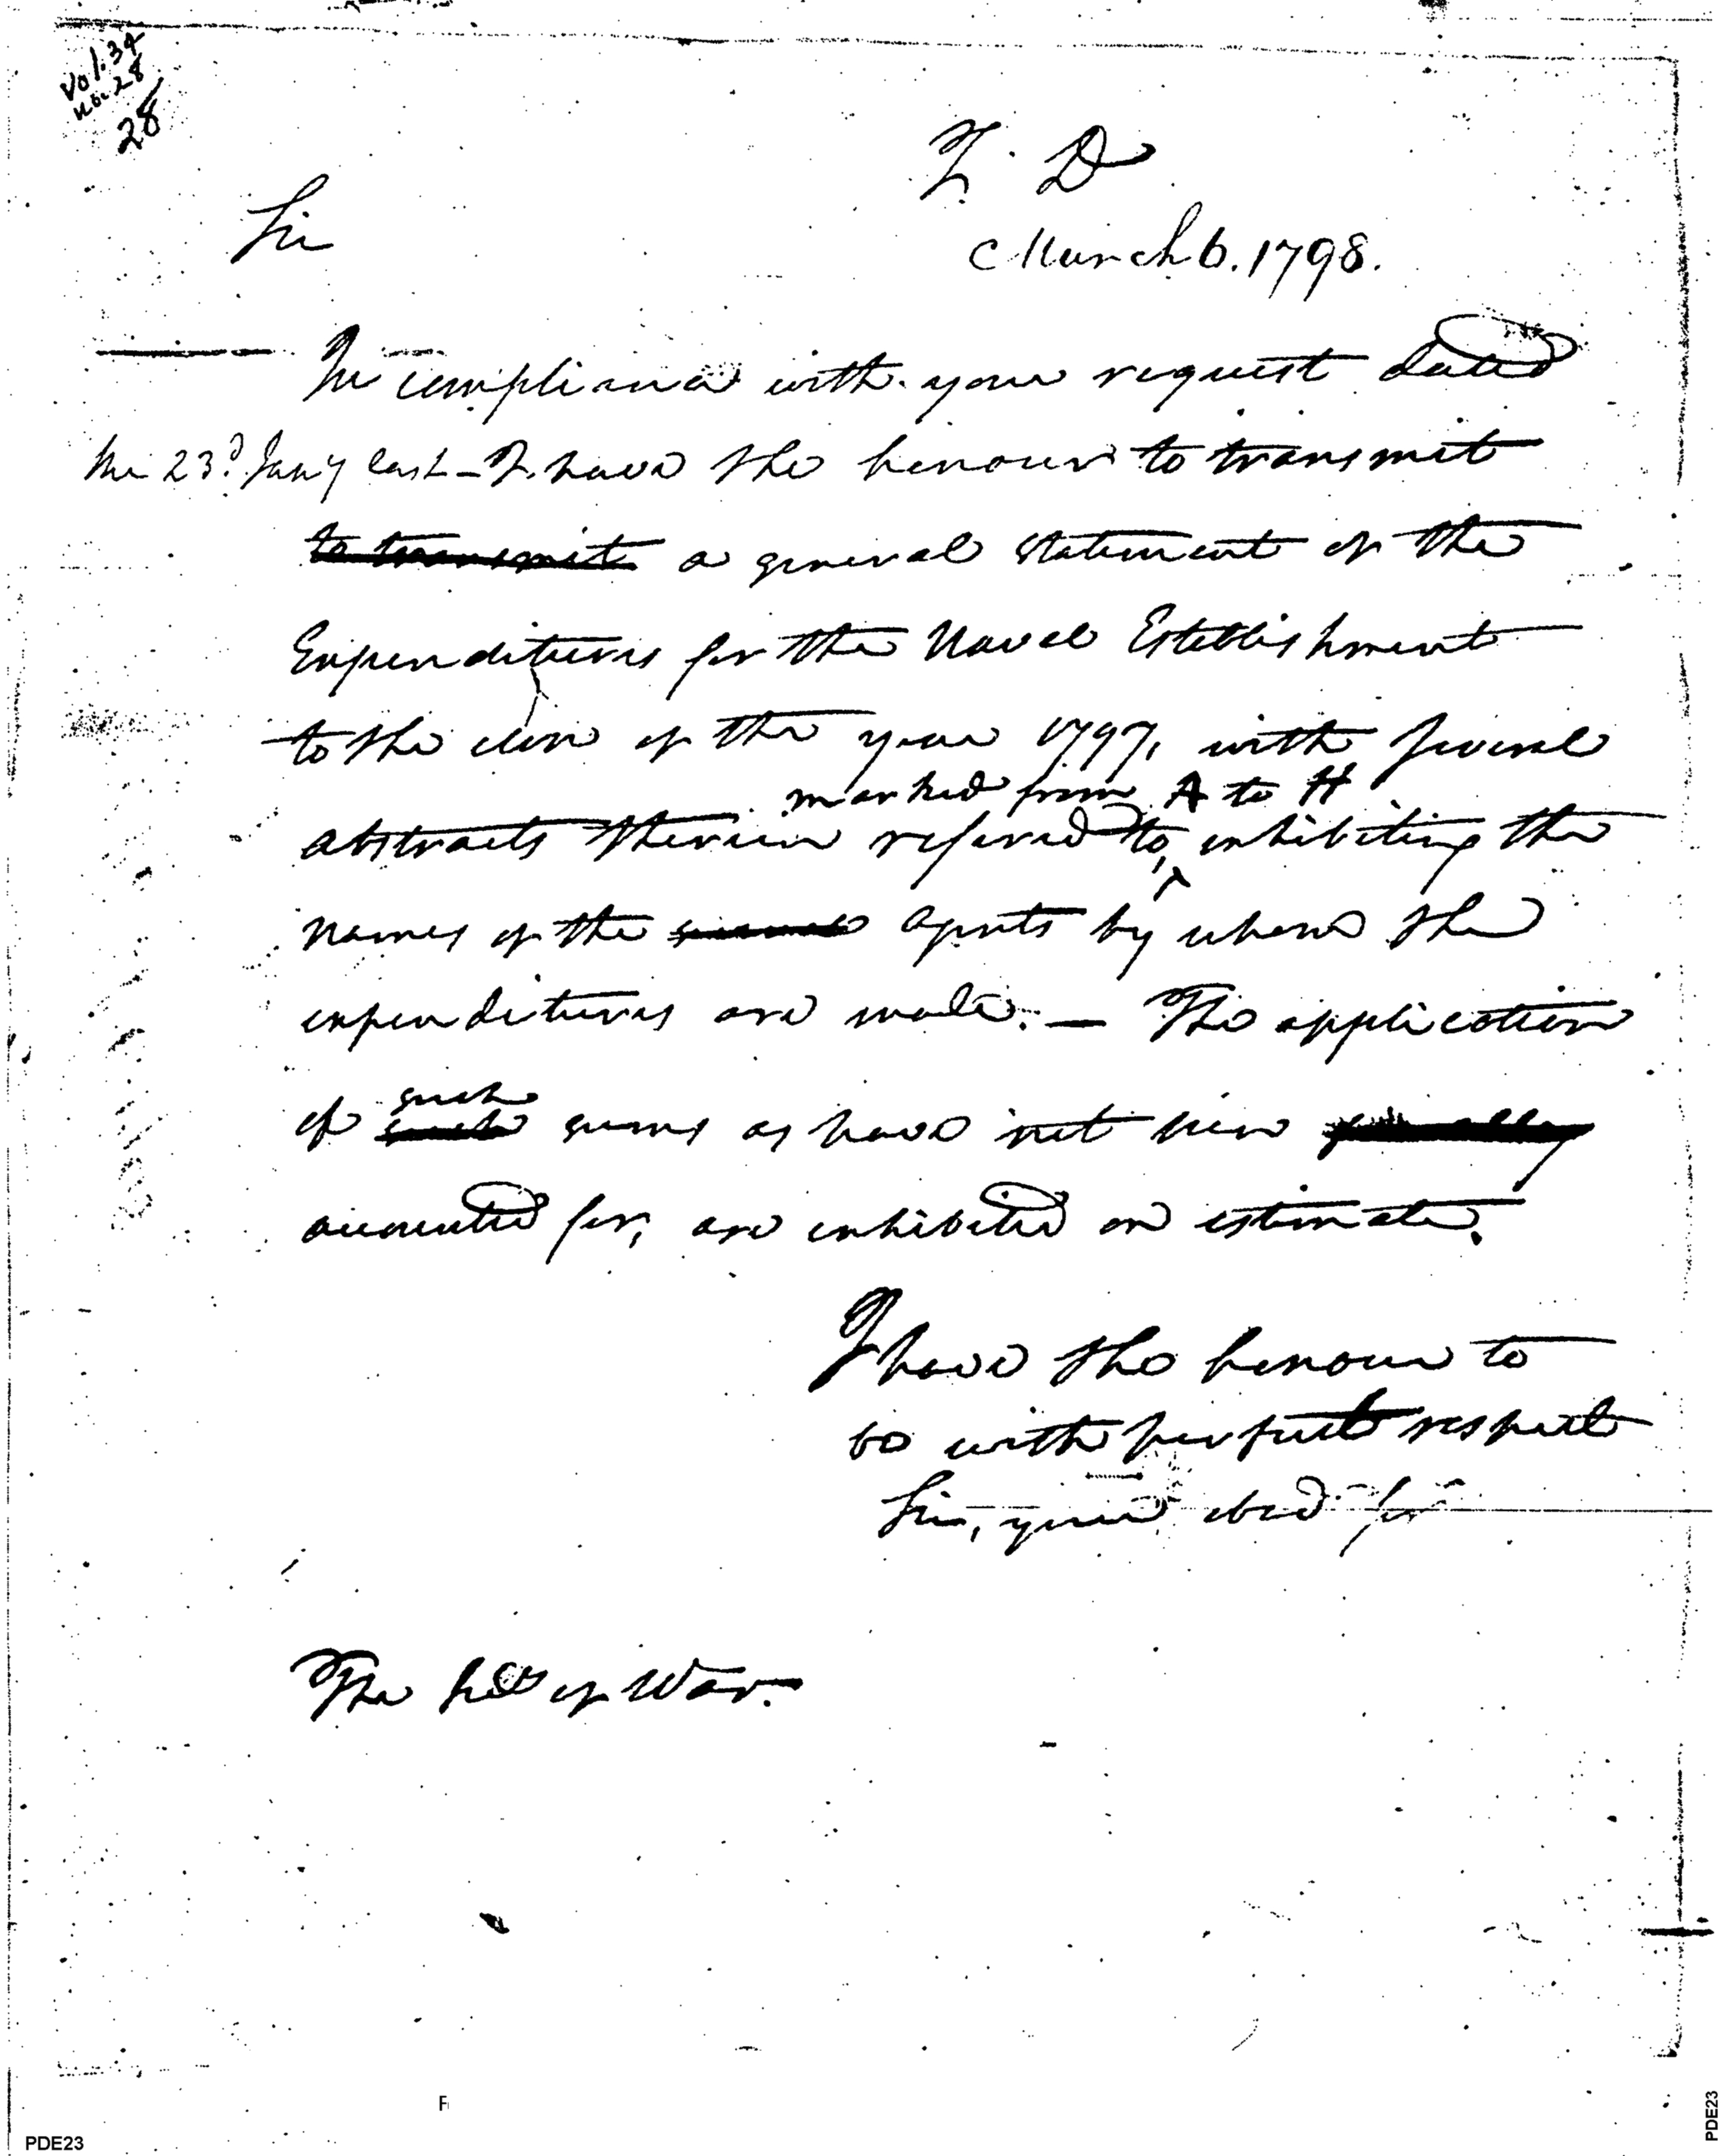 Vol. 34
No. 28
28
T. D
Sir
March 6. 1798.
In compliance with your request dated
the 23d. Jany last - I have the honour to transmit
to transmit a general statement of the
Expenditures for the Naval Establishment
to the close of the year 1797, with several
marked from A to H
abstracts therein referred to, exhibiting the
names of the several agents by whom the
expenditures are made. — The application
such
of such sums as have not been
accounted for, are exhibited on estimate.
I have the honour to
be with perfect respect
Sir, your obed Ser
The Secy of War.
F
PDE23
PDE23